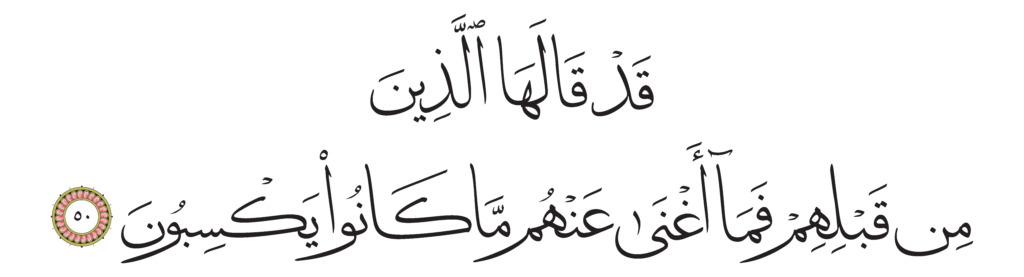 قَدْ قَالَهَا ٱلَّذِينَ
مِن قَبْلِهِمْ فَمَآ أَغْنَىٰ عَنْهُم مَّا كَانُوا۟ يَكْسِبُونَ ٥٠